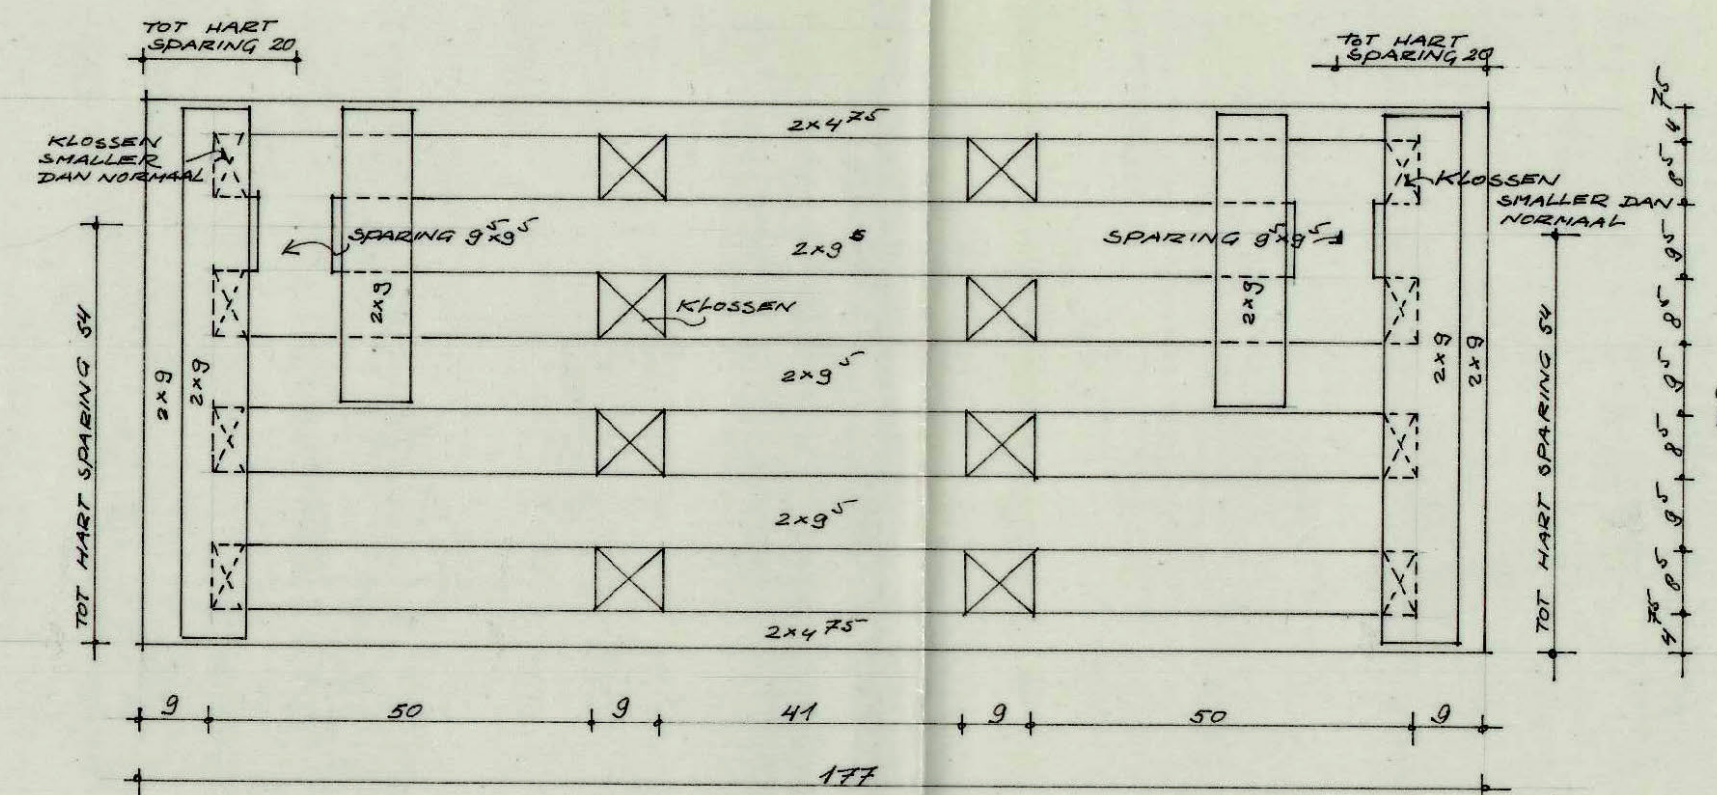 TOT HART
SPARING 20
TOT HART
SPARING 20
2×4⁷⁵
KLOSSEN
SMALLER
DAN NORMAAL
KLOSSEN
SMALLER DAN
NORMAAL
SPARING 9⁵×9⁵
2×9⁵
SPARING 9⁵×9⁵
2×9
KLOSSEN
2×9
TOT HART SPARING 54
2×9
2×9
2×9⁵
2×9
2×9
TOT HART SPARING 54
2×9⁵
2×4⁷⁵
4⁷⁵
8⁵
9⁵
8⁵
9⁵
8⁵
9⁵
8⁵
4⁷⁵
9 50 9 41 9 50 9
177